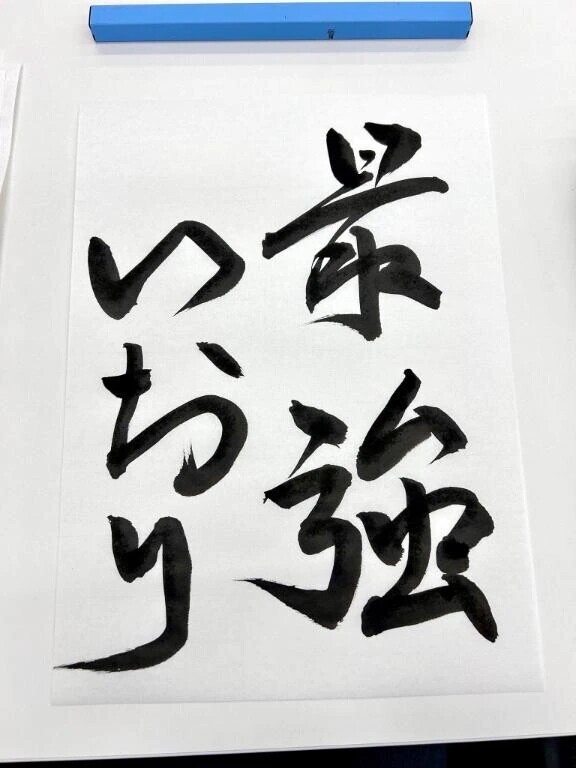 最強
いおり